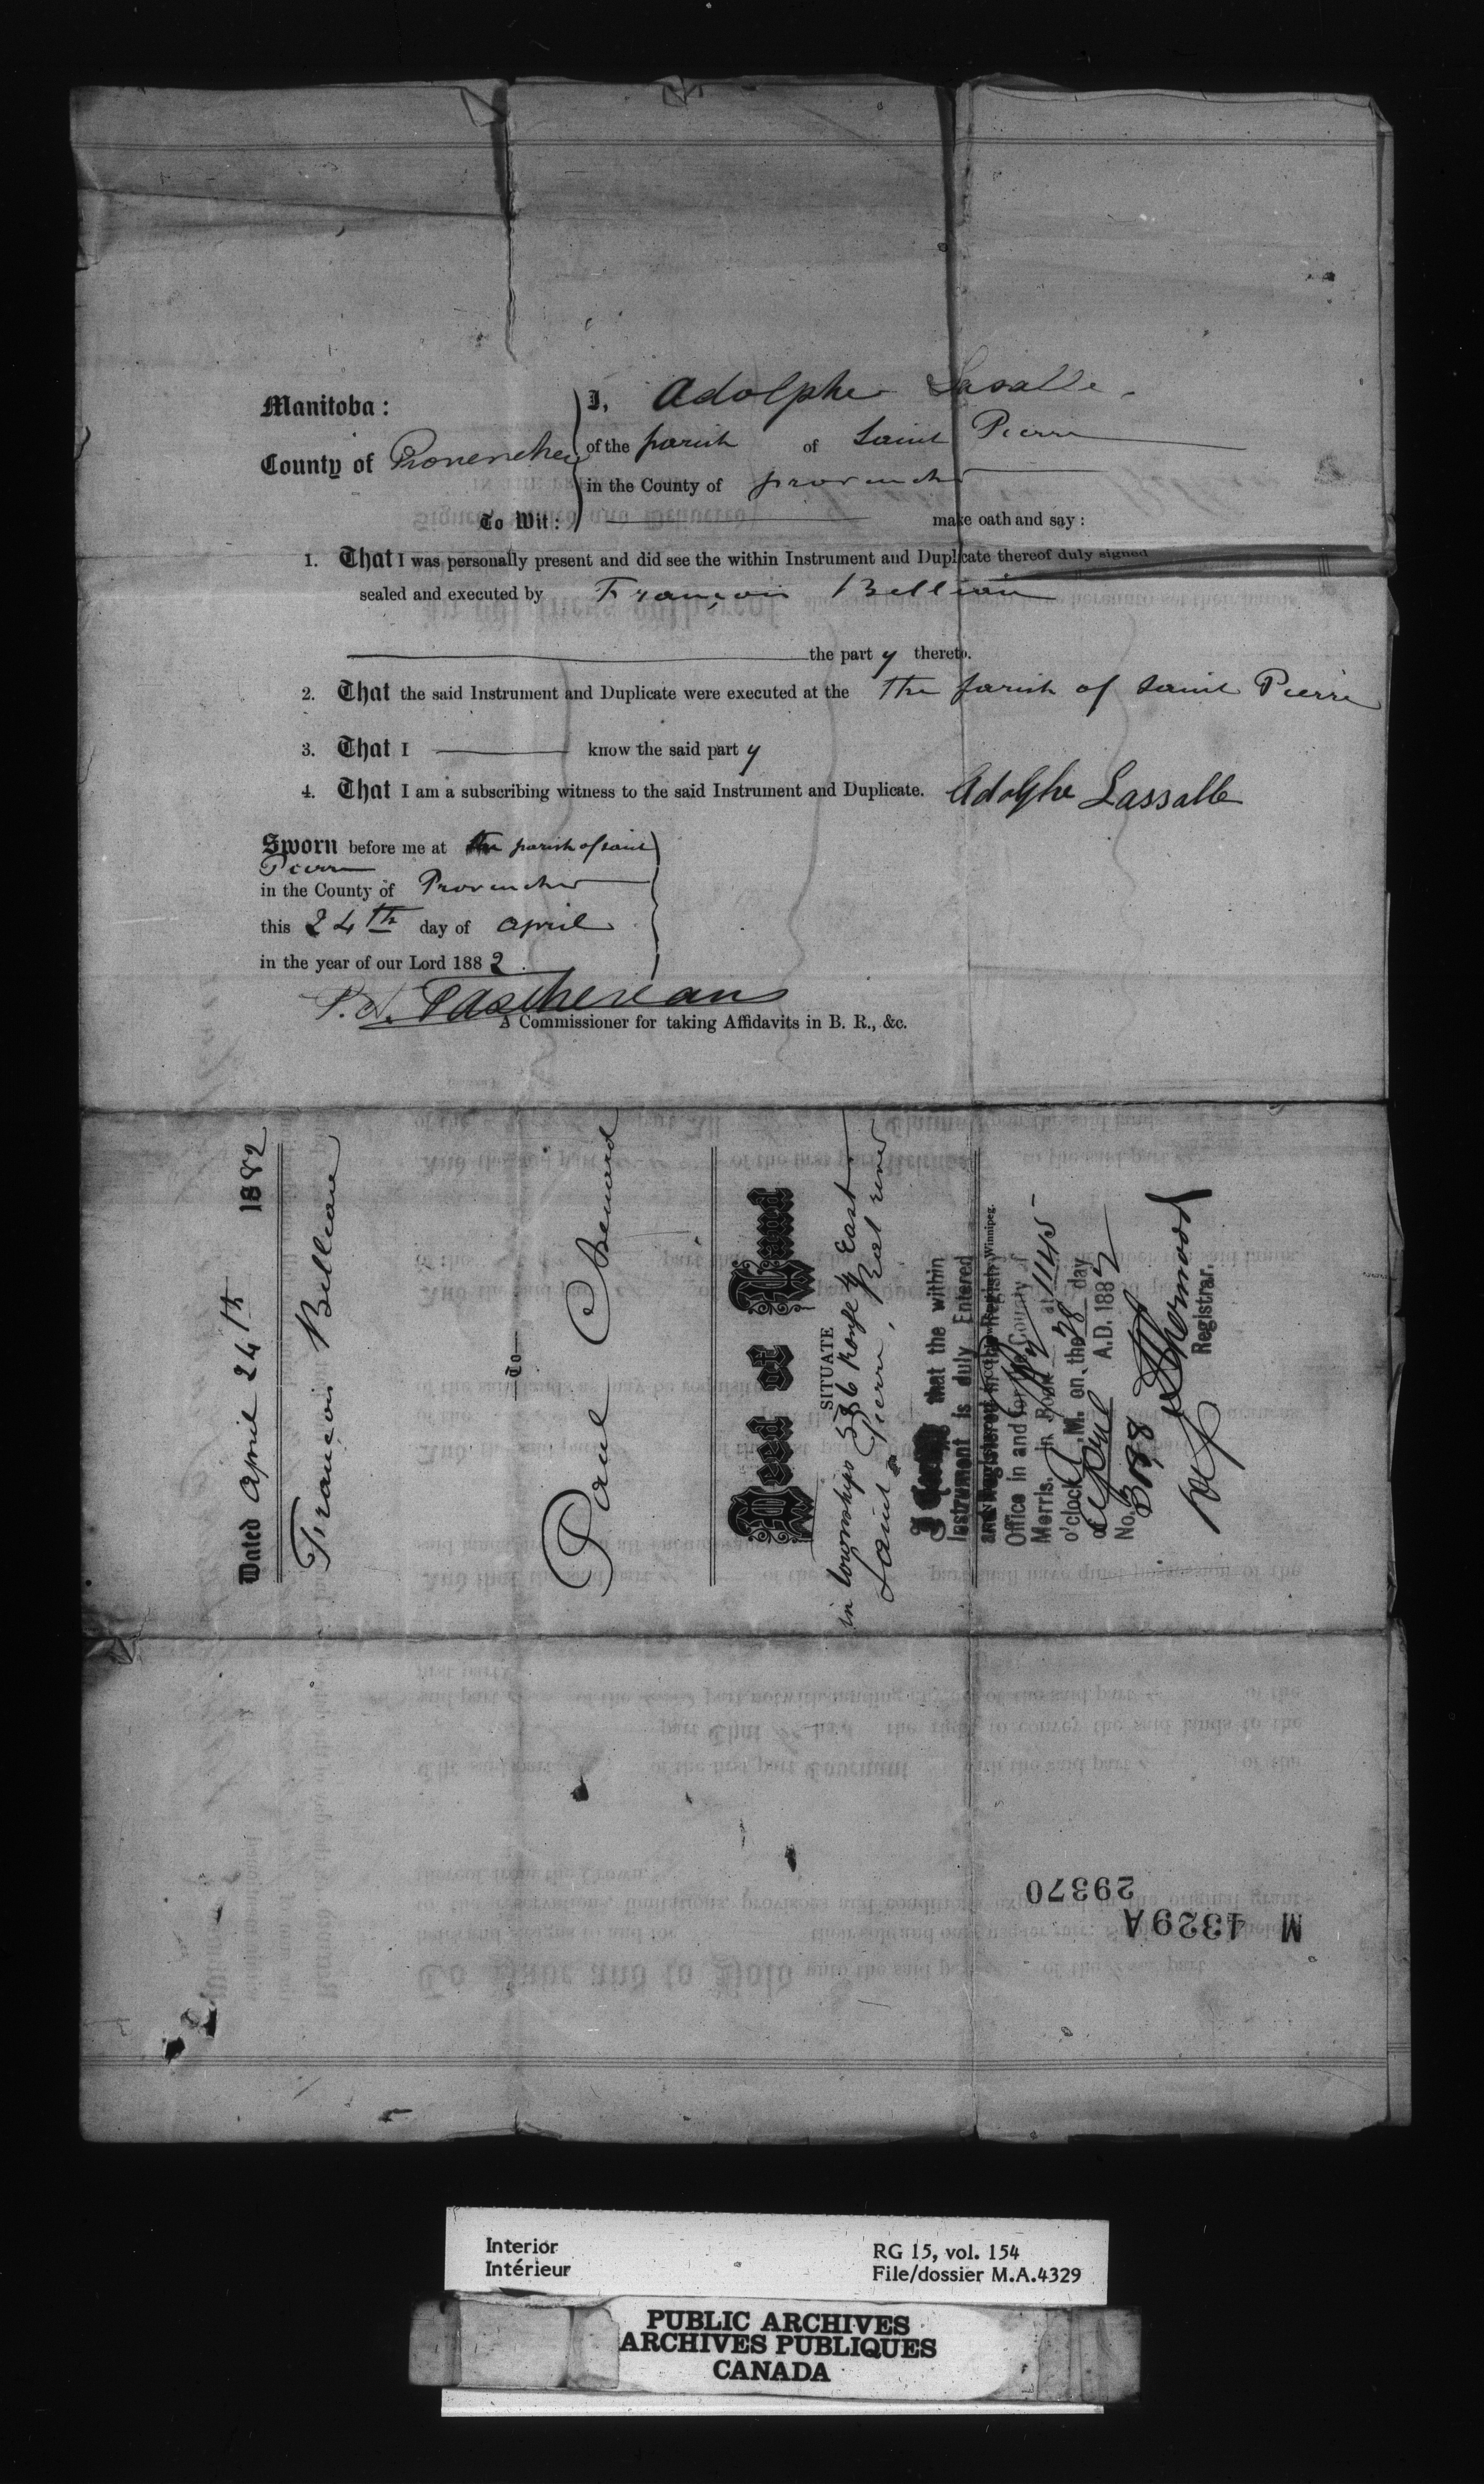 Manitoba:
County of Provencher
To Wit:
I, Adolphe Lasalle
of the parish of Saint Pierre
in the County of provencher
make oath and say:
1. That I was personally present and did see the within Instrument and Duplicate thereof duly signed
sealed and executed by François
the party thereto.
2. That the said Instrument and Duplicate were executed at the the parish of Saint Pierre
3. That I know the said party
4. That I am a subscribing witness to the said Instrument and Duplicate. Adolphe Lassalle
Sworn before me at the parish of saint
Pierre
in the County of Provencher
this 24th day of april
in the year of our Lord 1882.
A Commissioner for taking Affidavits in B. R., &c.
Dated april 24th 1882
François
To
Paul
Deed of Land
SITUATE
in townships 5 & 6 Range 4 East
Saint Pierre, Rat river
I Certify that the within
Instrument is duly Entered
and Registered in the Registry
Office in and for the County of
Morris. in Book at 1145
o'clock M. on the 28 day
of April A.D. 1882
No. 3188
Dep
Registrar.
Winnipeg.
29370
M 4329A
Interior
Intérieur
RG 15, vol. 154
File/dossier M.A.4329
PUBLIC ARCHIVES
ARCHIVES PUBLIQUES
CANADA